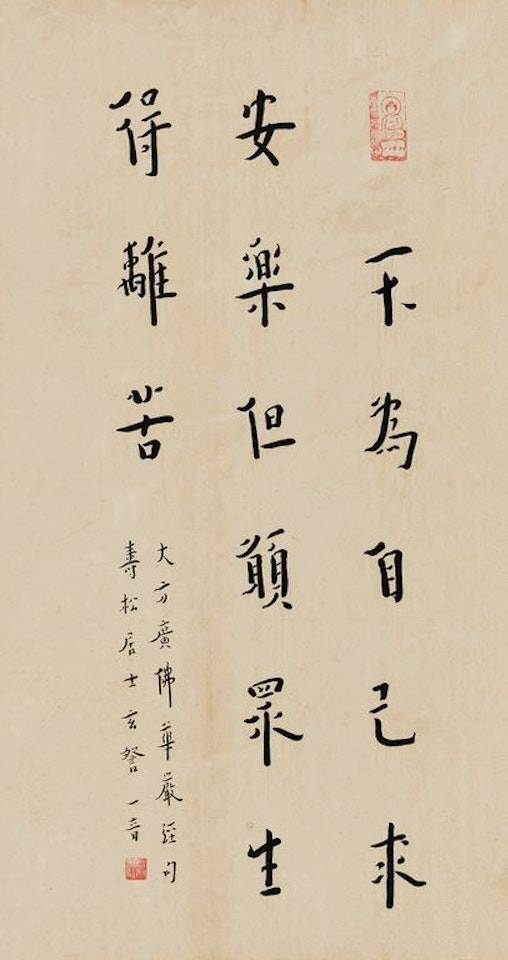 不為自己求
安樂但願眾生
得離苦
大方廣佛華嚴經句
壽松居士玄詧一音